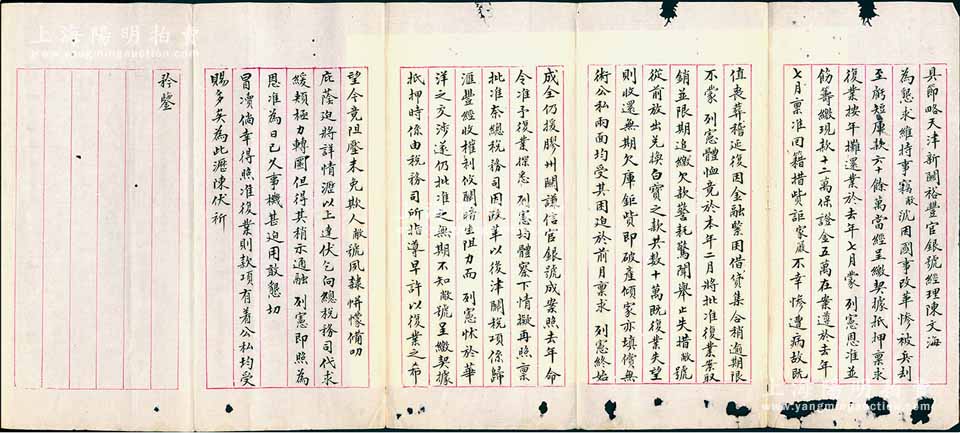 具節略天津新關裕豐官銀號經理陳文海
為懇求維持事竊敝沈因國事改革慘被兵刦
至虧短庫款六十餘萬當經呈繳契據抵押稟求
復業按年攤還業於去年七月蒙 列憲恩准並
飭籌繳現款十二萬保證金五萬在案遵於去年
七月稟准回籍措貲詎家嚴不幸慘遭病故既
值喪葬稽延復因金融緊困借貸集合稍逾期限
不蒙 列憲體恤竟於本年二月將批准復業案取
銷並限期追繳欠款驚耗驚聞舉止失措敝號
從前放出兌換白寶之款共數十萬既復業失望
則收還無期欠庫鉅貲即破產傾家亦填償無
術公私兩面均受其困迫於前月稟求 列憲終始
成全仍援膠州關謙信官銀號成案照去年命
令准予復業俱悉 列憲均體察下情擬再照稟
批准奈總稅務司因政革以後津關稅項係歸
滙豐經收權利攸關暗生阻力而 列憲怵於華
洋之交涉遂仍批准之無期不知敝號呈繳契據
抵押時係由稅務司所指導早許以復業之希
望今竟阻壓未免欺人敝號夙隸帡幪備叨
庇蔭迫將詳情瀝以上達伏乞向總稅務司代求
緩頰極力轉圜但得其稍示通融 列憲即照為
恩准為日已久事機甚迫用敢懇切
冒瀆倘幸得照准復業則款項有着公私均受
賜多矣為此瀝陳伏祈
矜鑒
上海陽明拍賣
www.yangmingauction.com
www.yangmingauction.com